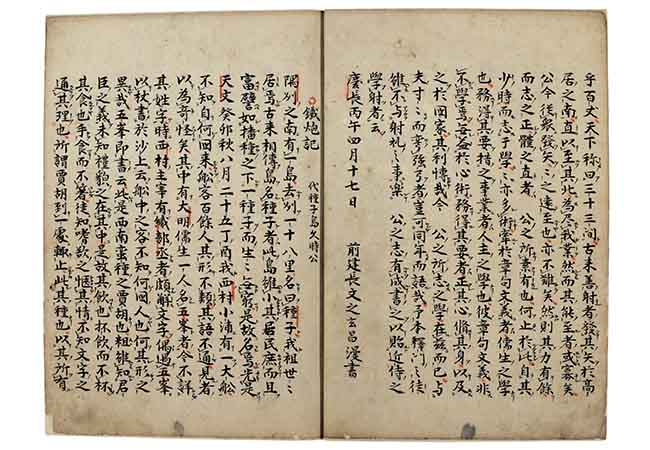 乎百丈天下称曰三十三間古来善射者發其矢於高
居之南直以至其北為尽我業然而其能至者或寡矣
公今従衆發矢々之達至也亦不難矣然則其力有餘
而志之正體之直者 公之所業有也何止於此自其
少時而志于學々亦多術窄於章句文義者儒生之學
也務得其要措之事業者人主之學也彼章句文義非
不學焉無益於心術務得其要者正其心脩其身以及
之於國家其利博哉今 公之所志之學在茲而已与
夫寸々而業強弓者豈可同年而語哉予本釋門之徒
雖不与射礼之事樂 公之志有成書之以貽近侍之
學射者云
慶長丙午四月十七日 前建長文之玄昌漫書
鐵炮記 代種子島久時公
隅州之南有一島去州一十八里名曰種子我祖世々
居焉古来相傳島名種子者此島雖小其居民庶而且
富譬如播種之下一種子而生々無窮是故名焉先是
天文癸卯秋八月二十五丁酉我西村小浦有一大船
不知自何国来船客百余人其形不類其語不通見者
以為奇怪矣其中有大明儒生一人名五峯者今不詳
其姓字時西村主宰有織部丞者頗解文字偶遇五峯
以杖書於沙上云船中之客不知何國人也何其形之
異哉五峯即書云此是西南蛮種之賈胡也粗雖知君
臣之義未知禮貌之在其中是故其飲也杯飲而不杯
其食也手食而不箸徒知嗜欲之愜其情不知文字之
通其理也所謂賈胡到一處輒止此其種也以其所有